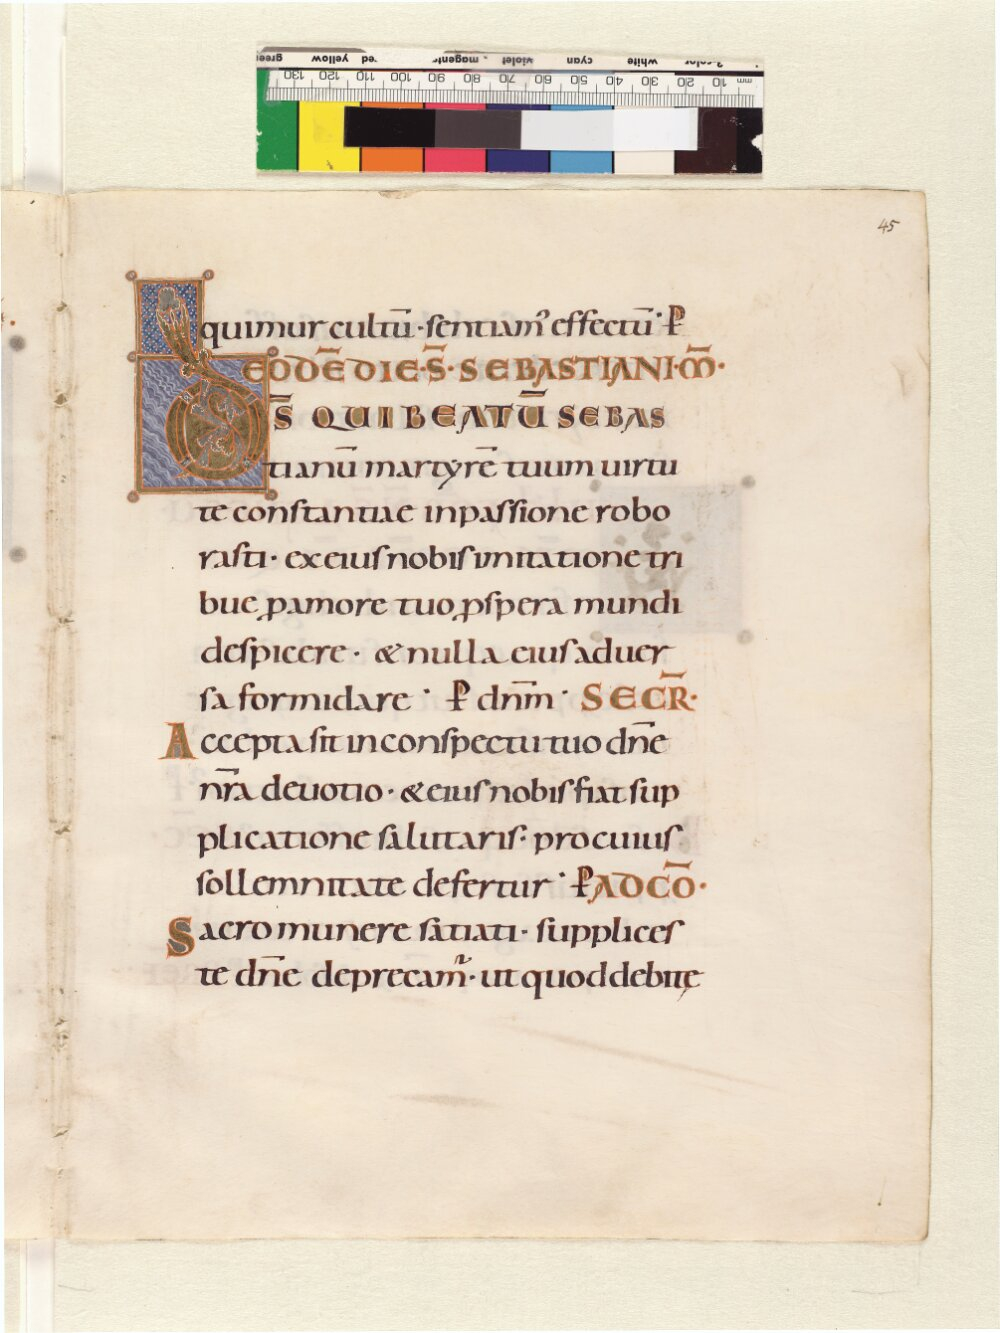 45
quimur cultū · sentiam᾽ effectū · P
EODĒ DIE · S̄ · SEBASTIANI · M̄ ·
D̄S QUI BEATŪ SEBAS
tianū martyrē tuum uirtu
te constantiae inpassione robo
rasti · ex eius nobis imitatione tri
bue ꝑ amore tuo ꝓspera mundi
despicere · & nulla eius aduer
sa formidare · P dn̄m · SECR̄ ·
Accepta sit in conspectu tuo dn̄e
nr̄a deuotio · & eius nobis fiat sup
plicatione salutaris · pro cuius
sollemnitate defertur · P AD CŌ ·
Sacro munere satiati · supplices
te dn̄e deprecam̄ · ut quod debitę